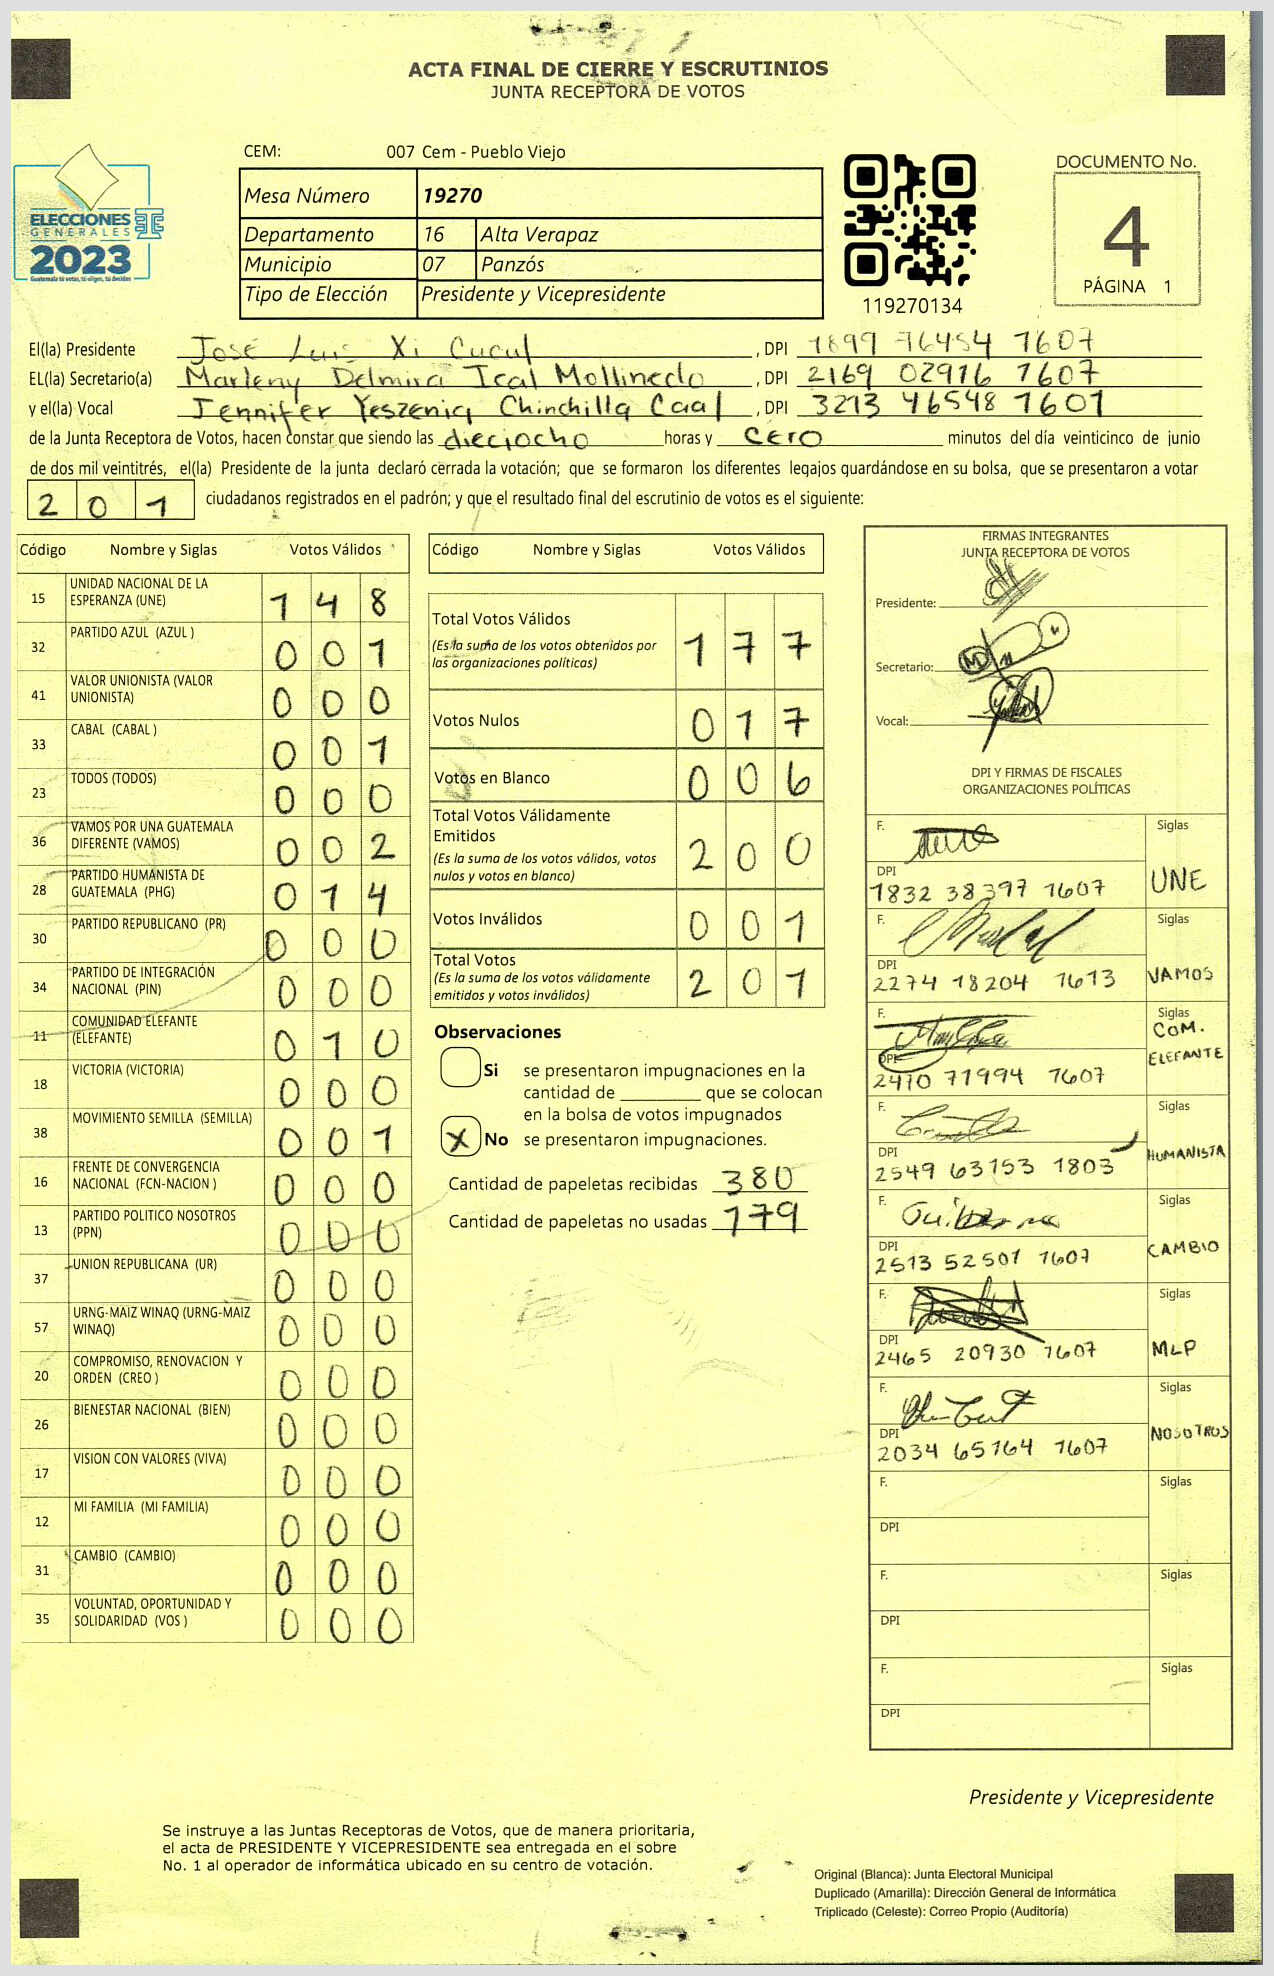 ACTA FINAL DE CIERRE Y ESCRUTINIOS
JUNTA RECEPTORA DE VOTOS
CEM: 007 Cem - Pueblo Viejo
Mesa Número 19270
Departamento 16 Alta Verapaz
Municipio 07 Panzós
Tipo de Elección Presidente y Vicepresidente
ELECCIONES
GENERALES
2023
Guatemala tú votas, tú eliges, tú decides
119270134
DOCUMENTO No.
4
PÁGINA 1
El(la) Presidente José Luis Xi Cucul, DPI 1899 76454 1607
EL(la) Secretario(a) Marleny Delmira Ical Mollinedo, DPI 2169 02916 1607
y el(la) Vocal Jennifer Yeszenia Chinchilla Caal, DPI 3213 46548 1601
de la Junta Receptora de Votos, hacen constar que siendo las dieciocho horas y cero minutos del día veinticinco de junio
de dos mil veintitrés, el(la) Presidente de la junta declaró cerrada la votación; que se formaron los diferentes legajos guardándose en su bolsa, que se presentaron a votar
2 0 1 ciudadanos registrados en el padrón; y que el resultado final del escrutinio de votos es el siguiente:
Código Nombre y Siglas Votos Válidos
15 UNIDAD NACIONAL DE LA ESPERANZA (UNE) 1 4 8
32 PARTIDO AZUL (AZUL ) 0 0 1
41 VALOR UNIONISTA (VALOR UNIONISTA) 0 0 0
33 CABAL (CABAL ) 0 0 1
23 TODOS (TODOS) 0 0 0
36 VAMOS POR UNA GUATEMALA DIFERENTE (VAMOS) 0 0 2
28 PARTIDO HUMANISTA DE GUATEMALA (PHG) 0 1 4
30 PARTIDO REPUBLICANO (PR) 0 0 0
34 PARTIDO DE INTEGRACIÓN NACIONAL (PIN) 0 0 0
11 COMUNIDAD ELEFANTE (ELEFANTE) 0 1 0
18 VICTORIA (VICTORIA) 0 0 0
38 MOVIMIENTO SEMILLA (SEMILLA) 0 0 1
16 FRENTE DE CONVERGENCIA NACIONAL (FCN-NACION ) 0 0 0
13 PARTIDO POLITICO NOSOTROS (PPN) 0 0 0
37 UNION REPUBLICANA (UR) 0 0 0
57 URNG-MAIZ WINAQ (URNG-MAIZ WINAQ) 0 0 0
20 COMPROMISO, RENOVACION Y ORDEN (CREO ) 0 0 0
26 BIENESTAR NACIONAL (BIEN) 0 0 0
17 VISION CON VALORES (VIVA) 0 0 0
12 MI FAMILIA (MI FAMILIA) 0 0 0
31 CAMBIO (CAMBIO) 0 0 0
35 VOLUNTAD, OPORTUNIDAD Y SOLIDARIDAD (VOS ) 0 0 0
Código Nombre y Siglas Votos Válidos
Total Votos Válidos 1 7 7
(Es la suma de los votos obtenidos por
las organizaciones políticas)
Votos Nulos 0 1 7
Votos en Blanco 0 0 6
Total Votos Válidamente
Emitidos 2 0 0
(Es la suma de los votos válidos, votos
nulos y votos en blanco)
Votos Inválidos 0 0 1
Total Votos 2 0 1
(Es la suma de los votos válidamente
emitidos y votos inválidos)
Observaciones
Si se presentaron impugnaciones en la
cantidad de que se colocan
en la bolsa de votos impugnados
X No se presentaron impugnaciones.
Cantidad de papeletas recibidas 380
Cantidad de papeletas no usadas 179
FIRMAS INTEGRANTES
JUNTA RECEPTORA DE VOTOS
Presidente:
Secretario:
Vocal:
DPI Y FIRMAS DE FISCALES
ORGANIZACIONES POLÍTICAS
F. Siglas
DPI UNE
1832 38397 1607
F. Siglas
DPI
2274 18204 1613 VAMOS
F. Siglas
COM.
DPI ELEFANTE
2470 71994 1607
F. Siglas
DPI HUMANISTA
2549 63153 1803
F. Siglas
DPI CAMBIO
2513 52501 1607
F. Siglas
DPI MLP
2465 20930 1607
F. Siglas
DPI NOSOTROS
2034 65164 1607
F. Siglas
DPI
F. Siglas
DPI
F. Siglas
DPI
Presidente y Vicepresidente
Se instruye a las Juntas Receptoras de Votos, que de manera prioritaria,
el acta de PRESIDENTE Y VICEPRESIDENTE sea entregada en el sobre
No. 1 al operador de informática ubicado en su centro de votación.
Original (Blanca): Junta Electoral Municipal
Duplicado (Amarilla): Dirección General de Informática
Triplicado (Celeste): Correo Propio (Auditoría)